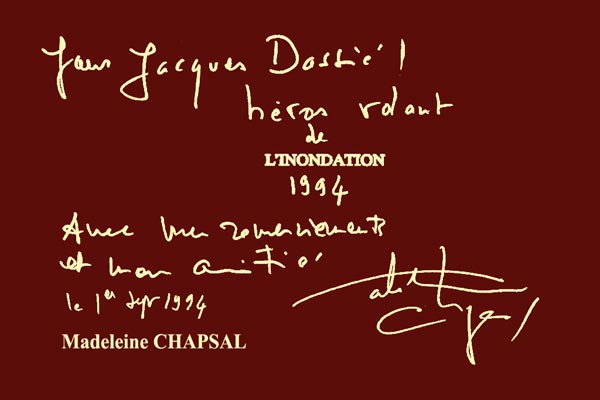 Pour Jacques Dossié !
héros volant
de
L'INONDATION
1994
Avec mes remerciements
et mon amitié
le 1er sept 1994
Madeleine CHAPSAL